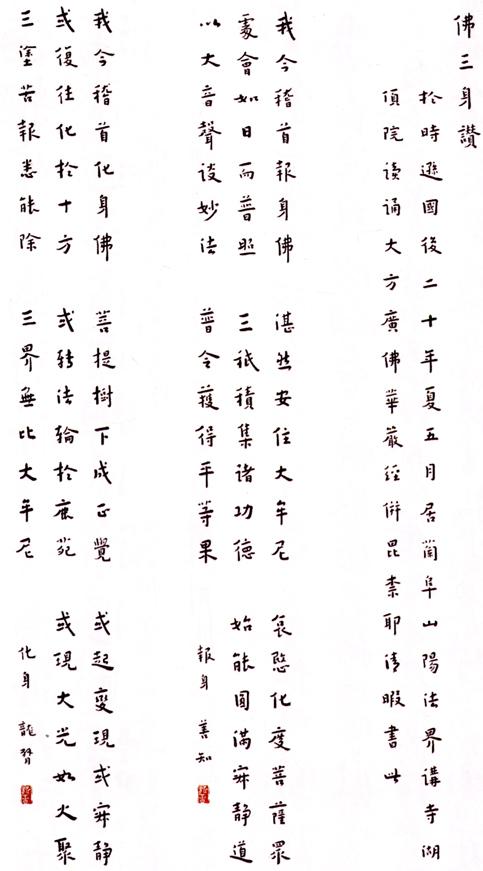 佛三身讚
於時遜國後二十年夏五月居蘭阜山陽法界講寺湖
院讀誦大方廣佛華嚴經併毘柰耶清暇書此
我今稽首報身佛 湛然安住大牟尼 哀愍化度菩薩眾
處會如日而普照 三祇積集諸功德 始能圓滿寂静道
以大音聲談妙法 普令獲得平等果 報身 善知
我今稽首化身佛 菩提樹下成正覺 或起變現或寂静
或復往化於十方 或轉法輪於鹿苑 或現大光如火聚
三塗苦報悉能除 三界無比大牟尼 化身 龍